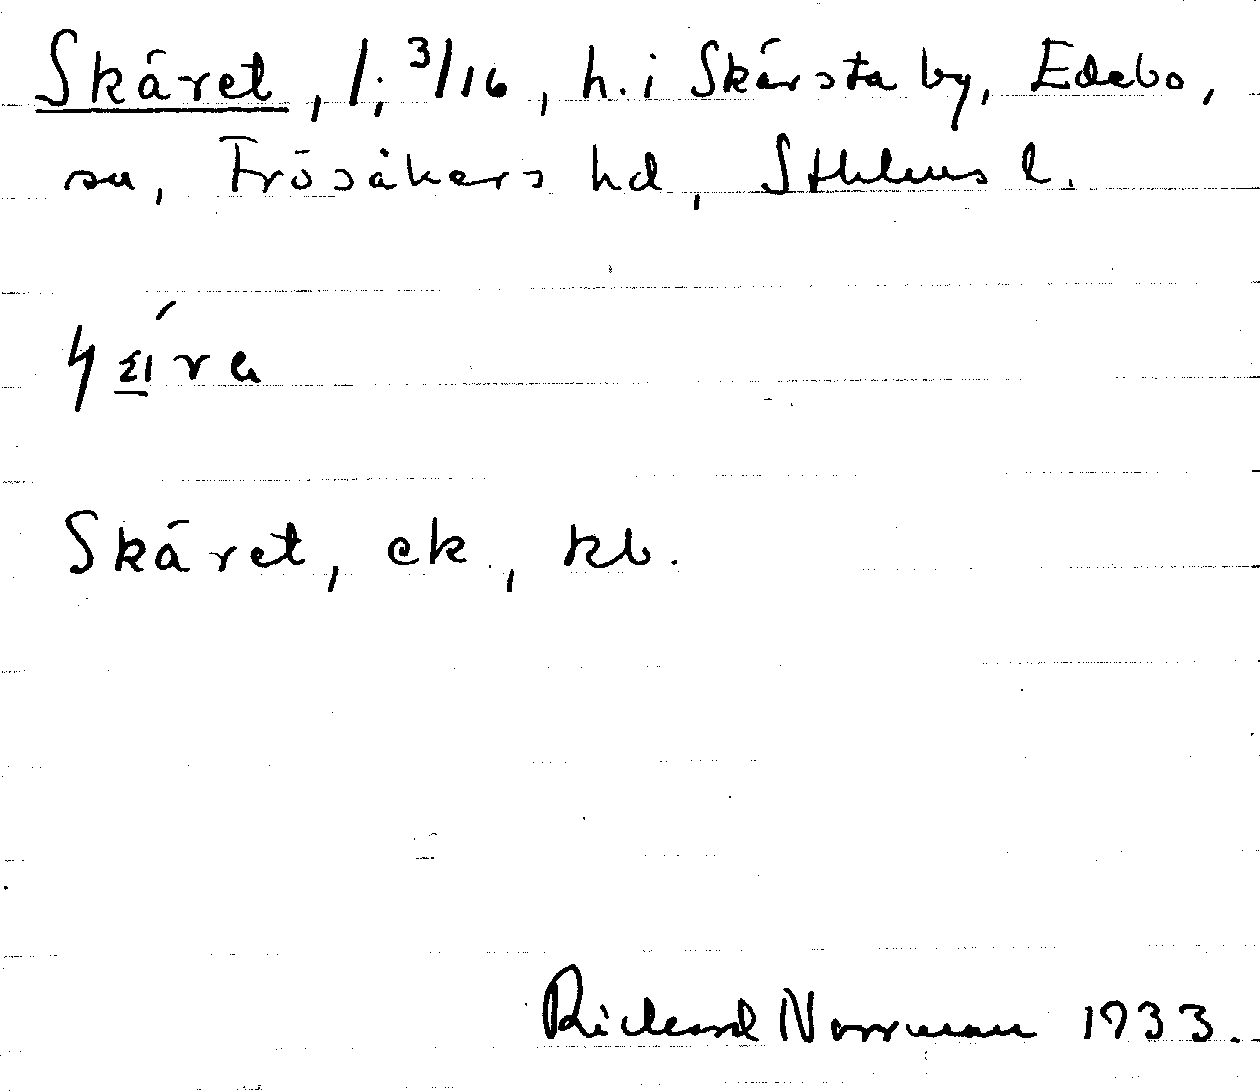 Skäret, /; 3/16, h. i Skärsta by, Edebo,
sn, Frösåkers hd, Sthlms l.
Skäret, ek, kb.
Rickard Norrman 1933.